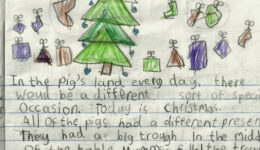 In the pig's land every day, there
woud be a different sort of special
Occasion. Today is Christmas.
All Of the pigs had a different presen
They had a big trough In the midd
Of the table